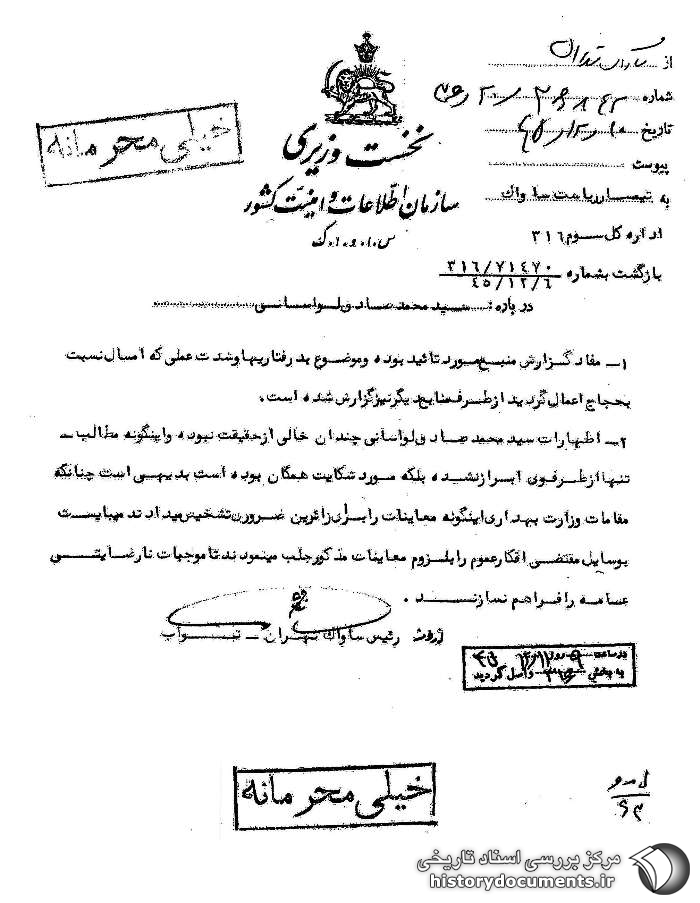 از ساواک تهران
شماره
تاریخ
پیوست
به تیمسار ریاست ساواک
اداره کل سوم ۳۱۶
بازگشت بشماره ۳۱۶/۷۱٤۷۰
٤۵/۱۲/٦
خیلی محرمانه
نخست وزیری
سازمان اطلاعات و امنیت کشور
س.ا.و.ا.ک
درباره: سید محمد صادق لواسانی
۱- مفاد گزارش منبع مورد تائید بوده و موضوع بدرفتاریها و شدت عملی که امسال نسبت
بحجاج اعمال گردید از طرف منابع دیگر نیز گزارش شده است.
۲- اظهارات سید محمد صادق لواسانی چندان خالی از حقیقت نبوده و اینگونه مطالب -
تنها از طرف وی ابراز نشده بلکه مورد شکایت همگان بوده است بدیهی است چنانکه
مقامات وزارت بهداری اینگونه معاینات را برای زائرین ضروری تشخیص میدادند میبایست
بوسایل مقتضی افکار عموم را بلزوم معاینات مذکور جلب مینمودند تا موجبات نارضایتی
عامه را فراهم نسازند.
رئیس ساواک تهران - نواب
در ساعت روز
به بخش ۳۱۶ واصل گردید
خیلی محرمانه
مرکز بررسی اسناد تاریخی
historydocuments.ir